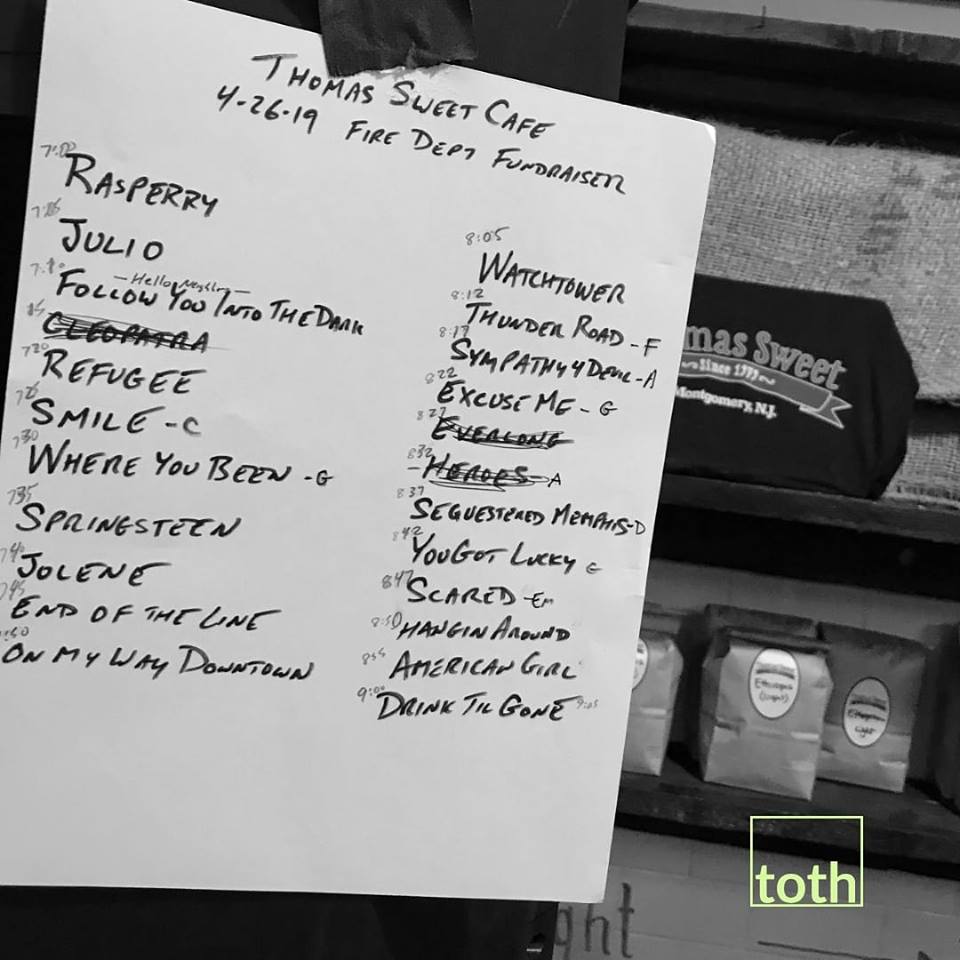 THOMAS SWEET CAFE
4-26-19 FIRE DEPT FUNDRAISER
7:00
RASPERRY
JULIO
- Hello
FOLLOW YOU INTO THE DARK
CLEOPATRA
720
REFUGEE
SMILE - C
730
WHERE YOU BEEN - G
735
SPRINGSTEEN
740
JOLENE
745
END OF THE LINE
ON MY WAY DOWNTOWN
8:05
WATCHTOWER
8:12
THUNDER ROAD - F
8:17
SYMPATHY 4 DEVIL - A
822
EXCUSE ME - G
827
EVERLONG
832
- HEROES - A
837
SEQUESTERED MEMPHIS - D
842
YOU GOT LUCKY
847
SCARED - Em
8:50
HANGIN AROUND
855
AMERICAN GIRL
9:00
DRINK TIL GONE 9:05
mas Sweet
Since 1979
Montgomery, N.J.
Ethiopia
(Light)
Light
ght
toth